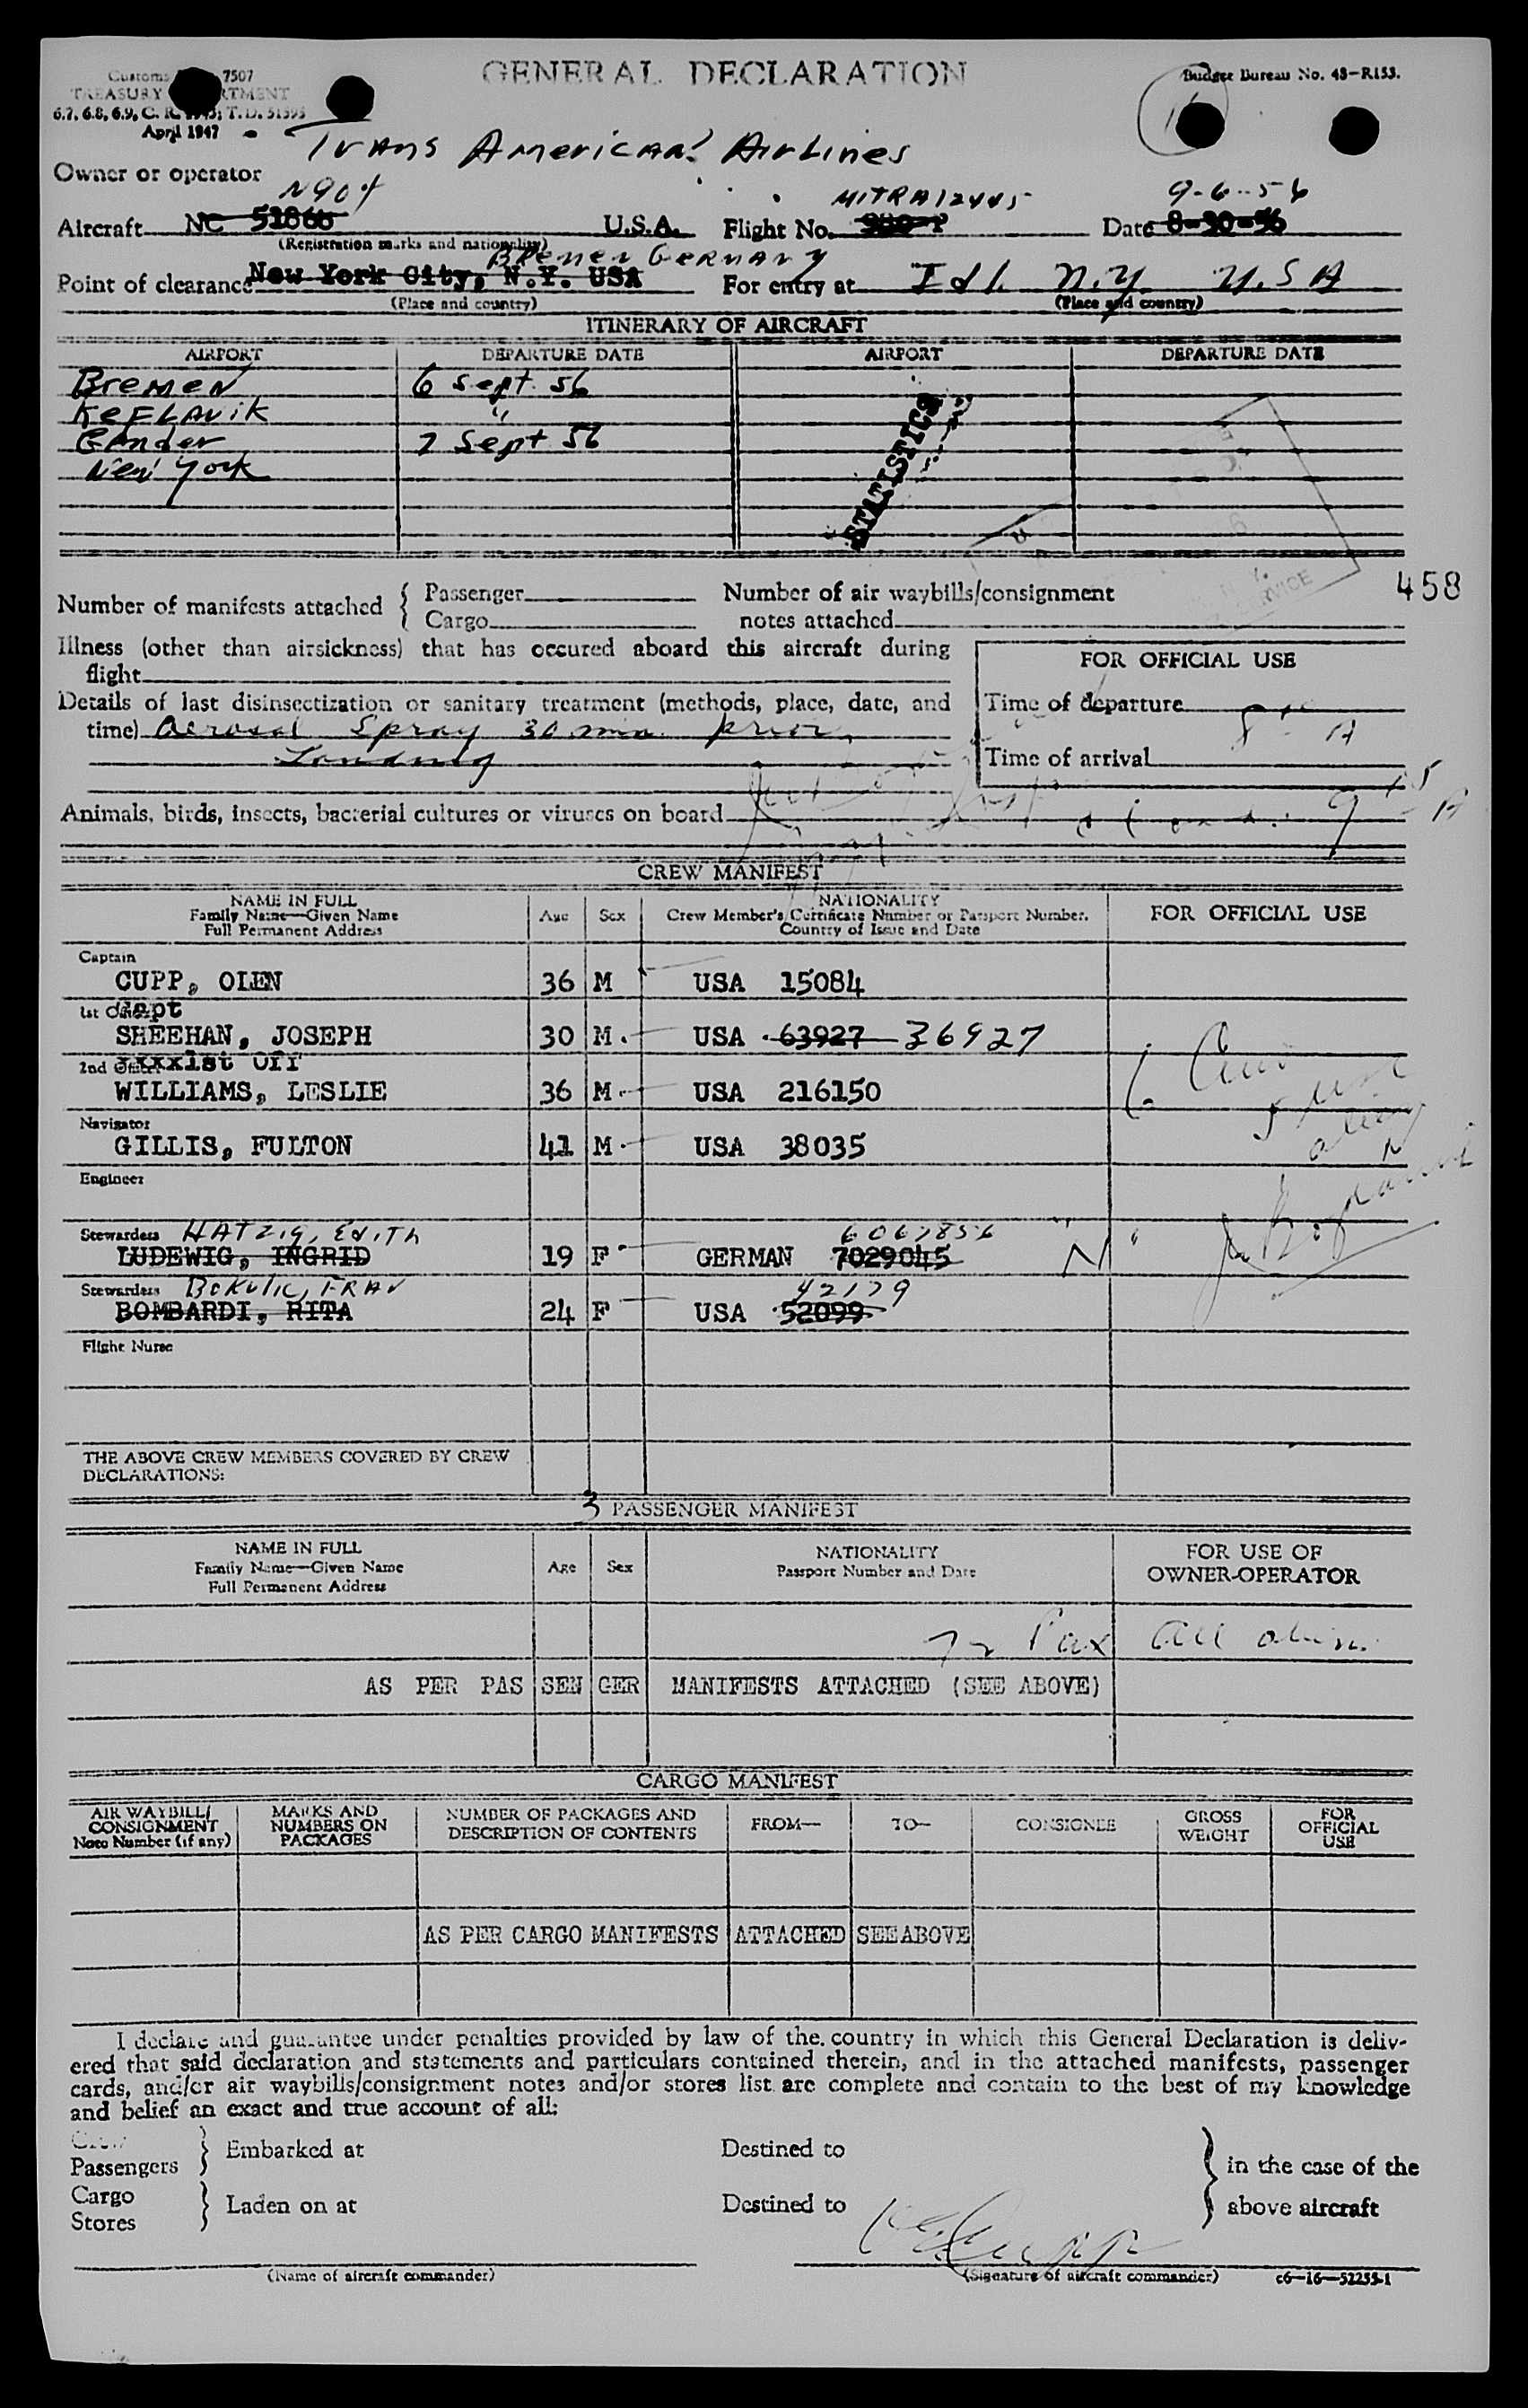 GENERAL DECLARATION
Customs 7507
TREASURY
6.7, 6.8, 6.9, C. R. 1943; T. D. 51595
April 1947
Budget Bureau No. 48-R153.
Trans American Airlines
Owner or operator
N904 MITRA12445 9-6-56
Aircraft NC 51866 U.S.A. Flight No. Date 8-30-56
(Registration marks and nationality)
Bremen Germany
Point of clearance New York City, N.Y. USA For entry at Idl. N.Y. U.S.A
(Place and country) (Place and country)
ITINERARY OF AIRCRAFT
AIRPORT DEPARTURE DATE AIRPORT DEPARTURE DATE
Bremen 6 Sept. 56
Keflavik "
Gander 7 Sept 56
New York
STATISTICS
458
Number of manifests attached { Passenger Number of air waybills/consignment
Cargo notes attached
Illness (other than airsickness) that has occured aboard this aircraft during
flight
FOR OFFICIAL USE
Details of last disinsectization or sanitary treatment (methods, place, date, and
Time of departure
time) Aerosol Spray 30 min. prior
Landing
Time of arrival
Animals, birds, insects, bacterial cultures or viruses on board
CREW MANIFEST
NAME IN FULL
Family Name—Given Name
Full Permanent Address
Age Sex
NATIONALITY
Crew Member's Certificate Number or Passport Number.
Country of Issue and Date
FOR OFFICIAL USE
Captain
CUPP, OLEN 36 M USA 15084
1st Capt
SHEEHAN, JOSEPH 30 M. USA 63927 36927
2nd 1st Off
WILLIAMS, LESLIE 36 M USA 216150
Navigator
GILLIS, FULTON 41 M USA 38035
Engineer
Stewardess HATZIG, EDITH
LUDEWIG, INGRID 19 F GERMAN 7029045 6067856
Stewardess BOKULIC, FRAN 42179
BOMBARDI, RITA 24 F USA 52099
Flight Nurse
THE ABOVE CREW MEMBERS COVERED BY CREW
DECLARATIONS:
3 PASSENGER MANIFEST
NAME IN FULL
Family Name—Given Name
Full Permanent Address
Age Sex
NATIONALITY
Passport Number and Date
FOR USE OF
OWNER-OPERATOR
72 Pax All aliens
AS PER PAS SEN GER MANIFESTS ATTACHED (SEE ABOVE)
CARGO MANIFEST
AIR WAYBILL/
CONSIGNMENT
Note Number (if any)
MARKS AND
NUMBERS ON
PACKAGES
NUMBER OF PACKAGES AND
DESCRIPTION OF CONTENTS
FROM— TO— CONSIGNEE
GROSS
WEIGHT
FOR
OFFICIAL
USE
AS PER CARGO MANIFESTS ATTACHED SEE ABOVE
I declare and guarantee under penalties provided by law of the country in which this General Declaration is deliv-
ered that said declaration and statements and particulars contained therein, and in the attached manifests, passenger
cards, and/or air waybills/consignment notes and/or stores list are complete and contain to the best of my knowledge
and belief an exact and true account of all:
Crew
Passengers } Embarked at Destined to } in the case of the
Cargo
Stores } Laden on at Destined to above aircraft
(Name of aircraft commander) (Signature of aircraft commander) c6—16—52255-1